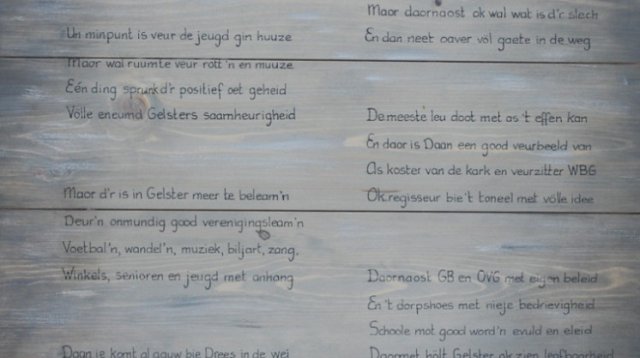 Un minpunt is veur de jeugd gin huuze
Maor wal ruumte veur rott'n en muuze
Eén ding sprunkd'r positief oet geheid
Volle eneumd Gelsters saamheurigheid
Maor d'r is in Gelster meer te beleam'n
Deur'n onmundig good verenigingsleam'n
Voetbal'n, wandel'n, muziek, biljart, zang,
Winkels, senioren en jeugd met anhang
Daan ie komt al gauw bie Drees in de wei
Maor daornaost ok wal wat is d'r slech
En dan neet oaver vôl gaete in de weg
De meeste leu doot met as 't effen kan
En daor is Daan een good veurbeeld van
As koster van de kark en veurzitter WBG
Ok regisseur bie't toneel met volle idee
Daornaost GB en OVG met eigen beleid
En 't dorpshoes met nieje bedrievigheid
Schoole mot good word'n evuld en eleid
Daormet hölt Gelster ok zien leefboarheid